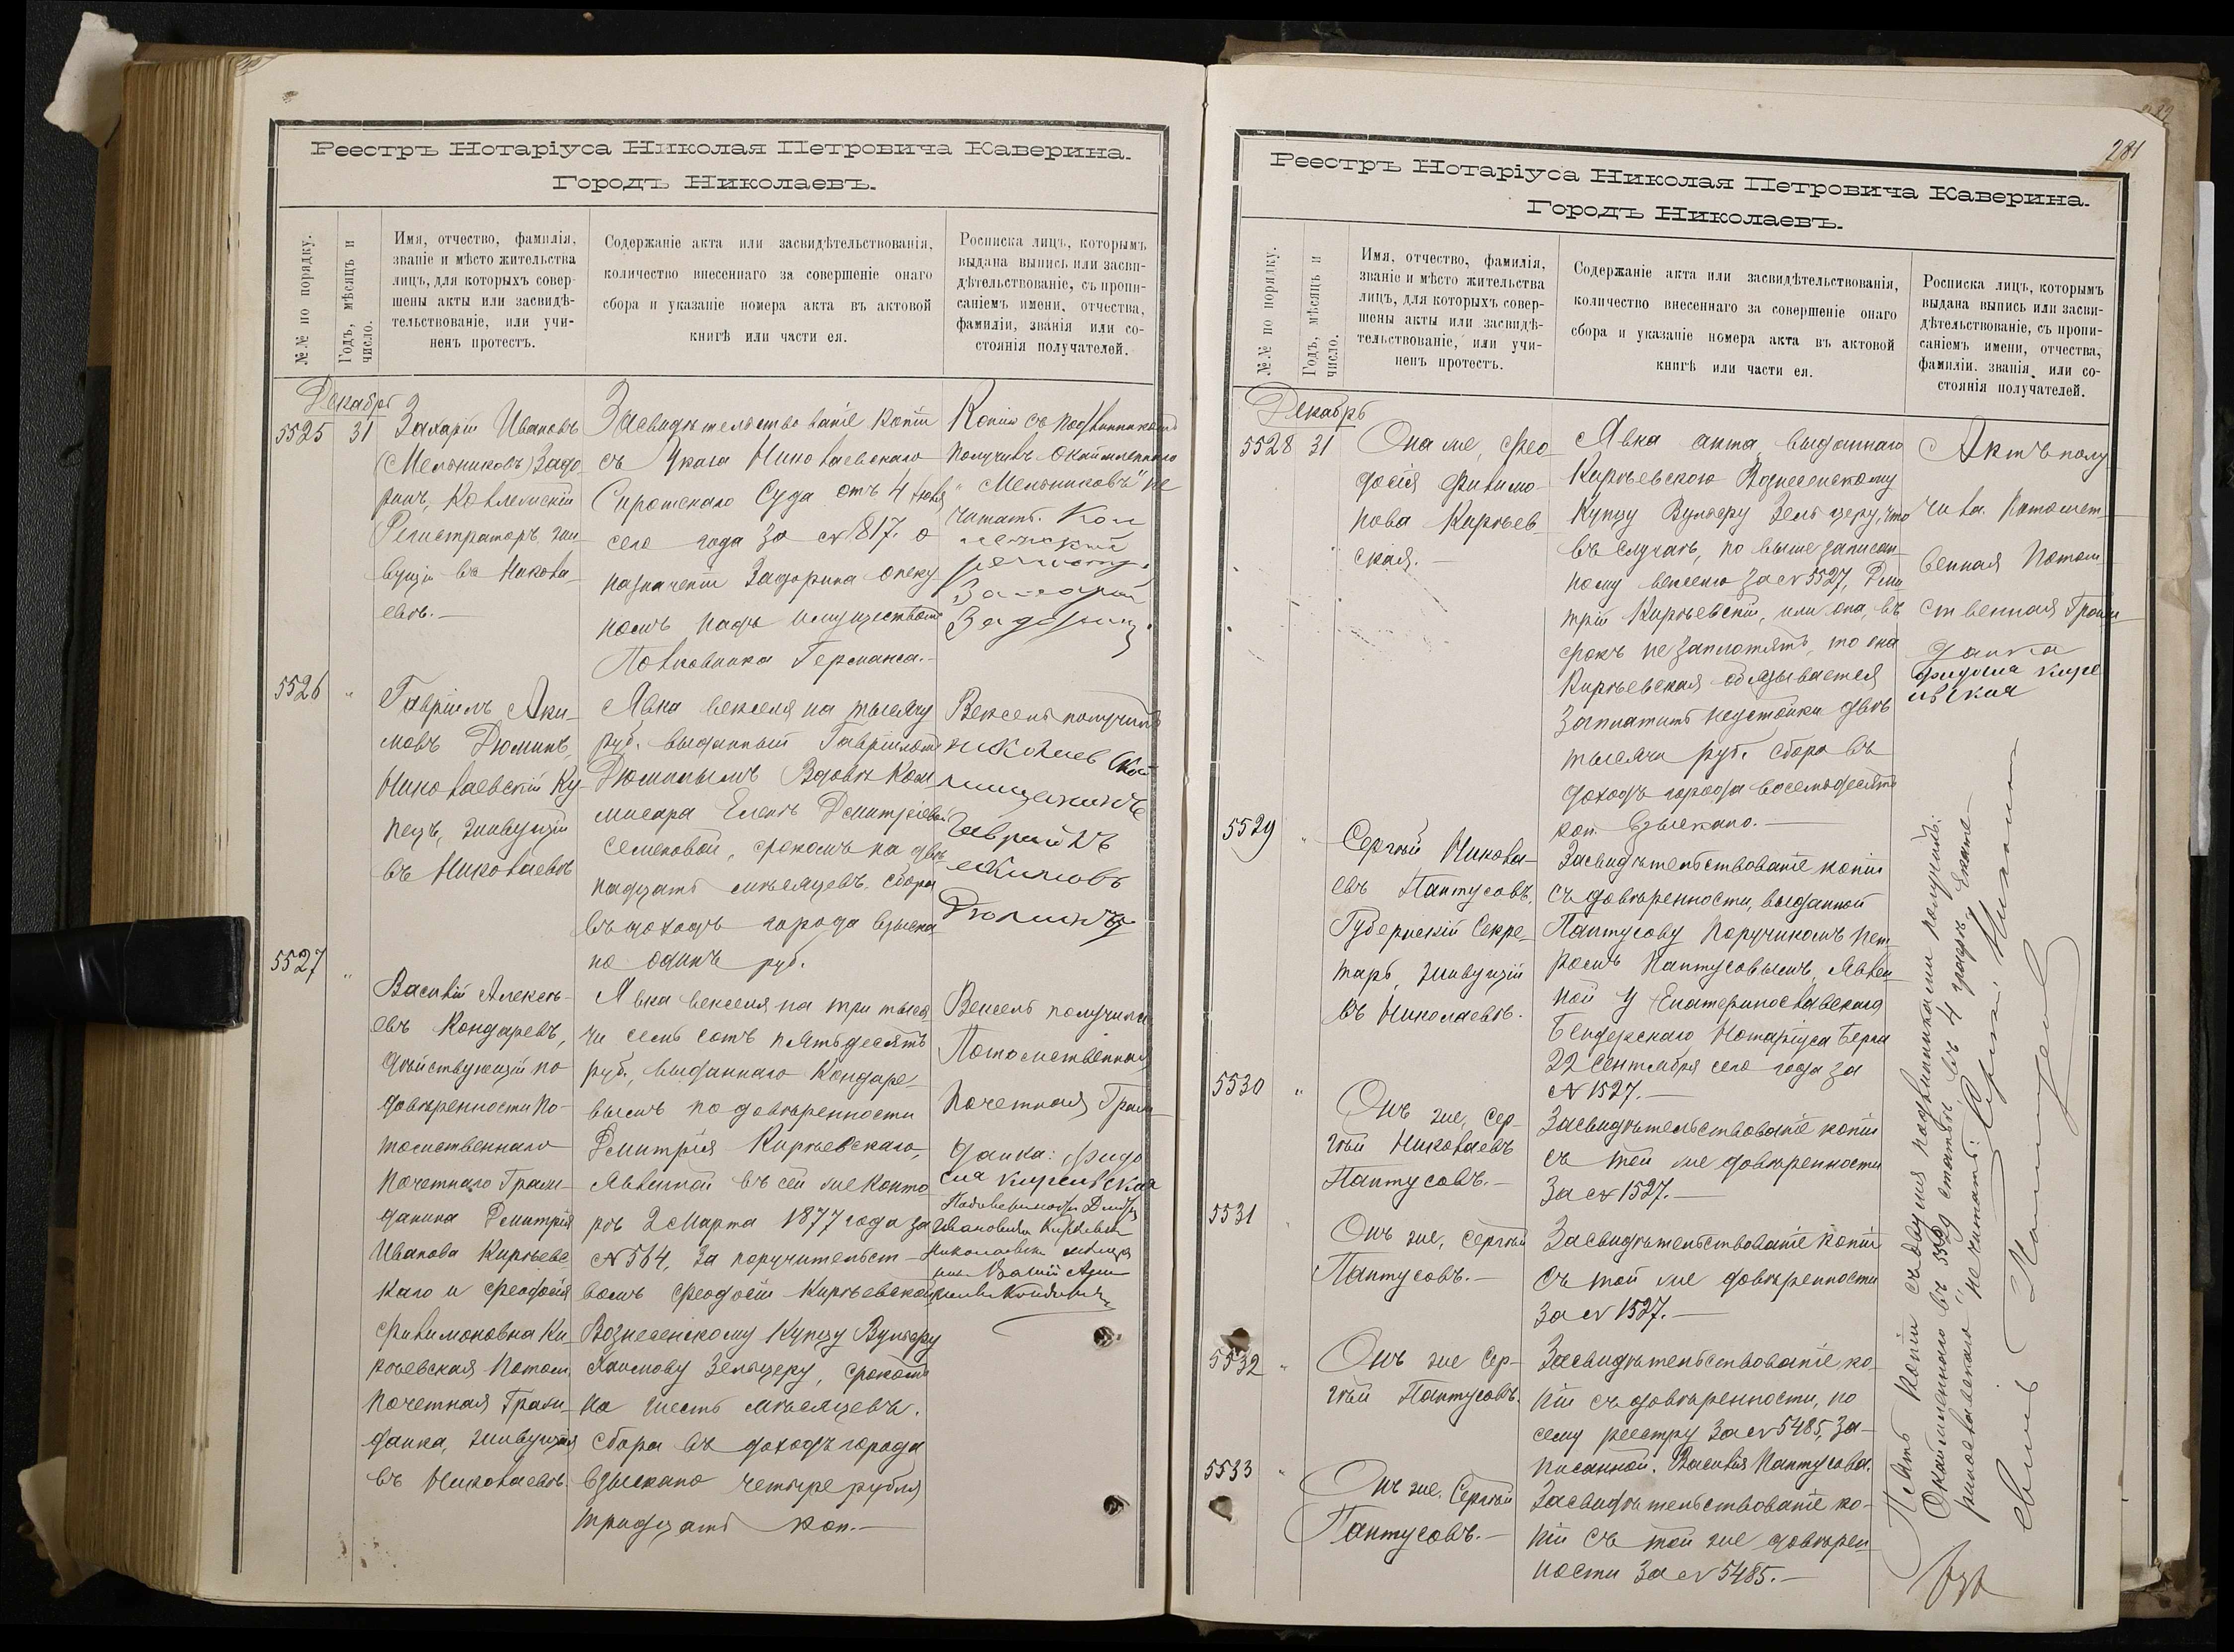 Реестръ Нотаріуса Николая Петровича Каверина.
Городъ Николаевъ.
№.№ по порядку.
Годъ, мѣсяцъ и
число.
Имя, отчество, фамилія,
званіе и мѣсто жительства
лицъ, для которыхъ совер-
шены акты или засвидѣ-
тельствованіе, или учи-
ненъ протестъ.
Содержаніе акта или засвидѣтельствованія,
количество внесеннаго за совершеніе онаго
сбора и указаніе номера акта въ актовой
книгѣ или части ея.
Росписка лицъ, которымъ
выдана выпись или засви-
дѣтельствованіе, съ пропи-
саніемъ имени, отчества,
фамиліи, званія или со-
стоянія получателей.
Декабрь
5525
31
Захарій Ивановъ
(Мельниковъ) Задо-
Регистраторъ жи-
вущій въ Никола-
евѣ.—
Засвидѣтельствованіе копіи
съ Указа Николаевскаго
Сиротскаго Суда отъ 4 Іюня
сего года за № 817. о
назначеніи Задорина опеку-
номъ надъ имуществомъ
Полковника Германса.—
Копію съ подлинникомъ
получилъ Окаймленнаго
„Мельниковъ" не
читать. Кол
лежский
регистр.
Захарий
Задорин
5526
"
Гавріилъ Аки-
мовъ Дюминъ,
Николаевскій Ку-
пецъ, живущій
въ Николаевѣ
Явка векселя на тысячу
руб. выданный Гавріиломъ
Дюминымъ Вдовѣ Ком-
мисара Еленѣ Дмитріевой
Семековой, срокомъ на двѣ-
надцать мѣсяцевъ. сбора
въ доходъ города взыска-
но одинъ руб.
Вексель получилъ
николаев ской
мищенинъ
Гаврийлъ
екимовъ
Дюминъ
5527
"
Василій Алексѣ-
евъ Кондаревъ,
дѣйствующій по
довѣренности По-
томственнаго
Почетнаго Граж-
данина Дмитрія
Иванова Кирѣевс-
каго и Феодосія
Филимоновна Ки-
рѣевская Потом.
Почетная Граж-
данка, живущая
въ Николаевѣ.
Явка векселя на три тыся-
чи семь сотъ пятьдесятъ
руб., выданнаго Кондаре-
вымъ по довѣренности
Дмитрія Кирѣевскаго,
явленной въ сей же Конто-
рѣ 2 Марта 1877 года за
№ 564, за поручительст-
вомъ Феодосіи Кирѣевской
Вознесенскому Купцу Вульфу
Хаимову Зельцеру, срокомъ
на шесть мѣсяцевъ.
сбора въ доходъ города
взыскано четыре рубля
тридцать коп.—
Вексель получила
Потомственная
Почетная Граж-
данка: Фидо
сиа Киреивская
281
Реестръ Нотаріуса Николая Петровича Каверина.
Городъ Николаевъ.
№.№ по порядку.
Годъ, мѣсяцъ и
число.
Имя, отчество, фамилія,
званіе и мѣсто жительства
лицъ, для которыхъ совер-
шены акты или засвидѣ-
тельствованіе, или учи-
ненъ протестъ.
Содержаніе акта или засвидѣтельствованія,
количество внесеннаго за совершеніе онаго
сбора и указаніе номера акта въ актовой
книгѣ или части ея.
Росписка лицъ, которымъ
выдана выпись или засви-
дѣтельствованіе, съ пропи-
саніемъ имени, отчества,
фамиліи. званія или со-
стоянія получателей.
Декабрь
5528
31
Она же, Фео-
досія Филимо-
нова Кирѣев-
ская.—
Явка акта, выданнаго
Кирѣевскою Вознесенскому
Купцу Вульфу Зельцеру, что
въ случаѣ, по вышезаписан-
ному векселю за № 5527, Дми-
трій Кирѣевскій, или она, въ
срокъ не заплатятъ, то она
Кирѣевская обязывается
заплатить неустойки двѣ
тысячи руб. сбора въ
доходъ города восемьдесятъ
коп. взыскано.—
Актъ полу
чила Потомст-
венная Потом
ственная Граж-
данка
Фидосиа Кире
ивская
5529
"
Сергѣй Никола-
евъ Пантусовъ,
Губернскій Секре-
тарь, живущій
въ Николаевѣ.
Засвидѣтельствованіе копіи
съ довѣренности, выданной
Пантусову Поручикомъ Пет-
ромъ Пантусовымъ, явлен-
ной у Екатеринославскаго
Бендерскаго Нотаріуса Берга
22 Сентября сего года за
№ 1527.—
5530
"
Онъ же, Сер-
гѣй Николаевъ
Пантусовъ.—
Засвидѣтельствованіе копіи
съ той же довѣренности
за № 1527.—
5531
Онъ же, Сергѣй
Пантусовъ.—
Засвидѣтельствованіе копіи
съ той же довѣренности
за № 1527.—
5532
"
Онъ же Сер-
гѣй Пантусовъ.
Засвидѣтельствованіе ко-
піи съ довѣренности, по
сему реестру за № 5485, за-
писанной. Василія Пантусова.
5533
"
Онъ же. Сергѣй
Пантусовъ.—
Засвидѣтельствованіе ко-
піи съ той же довѣрен-
ности за № 5485.—
Пять копій съ двумя подлинниками получилъ:
Окаймленнаго въ 5529 статьѣ въ 4 графѣ „Екате-
ринославскаго" не читать: Сергѣй Николае-
евичъ Пантусов